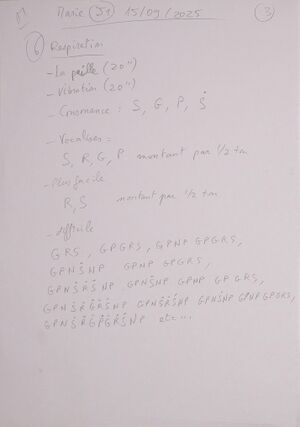 Marie (J1) 15/09/2025 (3)
(6) Respiration
- La paille (20")
- Vibration (20")
- Consonance : S, G, P, Ṡ
- Vocalises :
S, R, G, P montant par 1/2 ton
- Plus facile
R, S montant par 1/2 ton
- difficile
GRS, GPGRS, GPNP GPGRS,
GPNṠNP GPNP GPGRS,
GPNṠṘṠNP GPNṠNP GPNP GPGRS,
GPNṠṘĠṘṠNP GPNṠṘṠNP GPNṠNP GPNP GPGRS,
GPNṠṘĠṖĠṘṠNP etc...